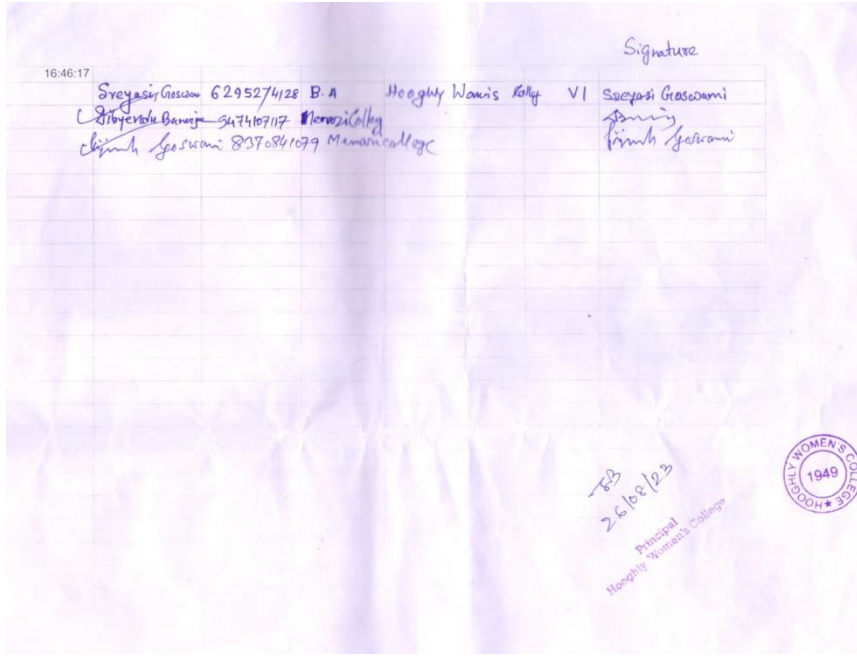 Signature
16:46:17
Sreyasi Goswami 6295274128 B.A Hooghly Womis Collg VI Sreyasi Goswami
Dibyendu Banerje 947410717 Memari Colleg
Goswami 8370841079 Memari college Goswami
26/08/23
Principal
Hooghly Women's College
HOOGHLY WOMEN'S COLLEGE
1949